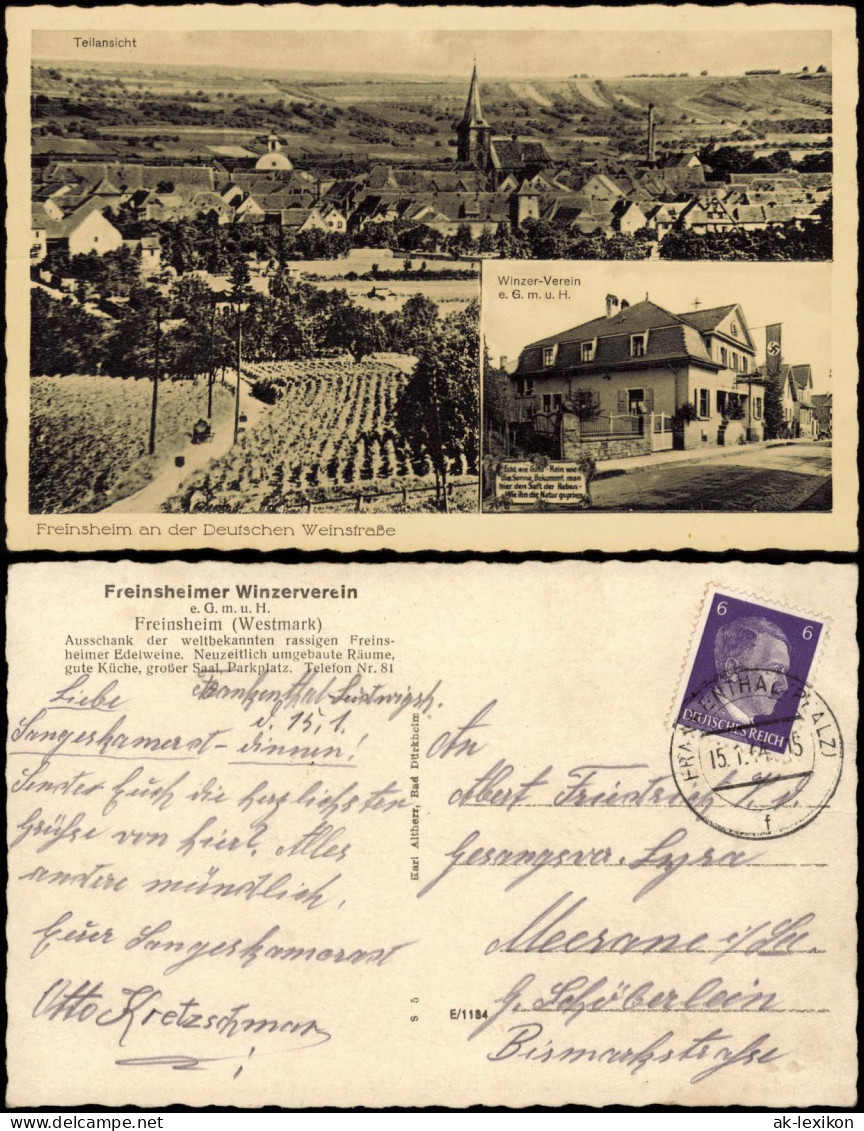 Teilansicht
Winzer-Verein
e. G. m. u. H.
Echt wie Gold - Rein wie
die Sonne, Bekommt man
hier den Saft der Reben -
Wie ihn die Natur gegeben
Freinsheim an der Deutschen Weinstraße
Freinsheimer Winzerverein
e. G. m. u. H.
Freinsheim (Westmark)
Ausschank der weltbekannten rassigen Freins-
heimer Edelweine. Neuzeitlich umgebaute Räume,
gute Küche, großer Saal, Parkplatz. Telefon Nr. 81
Frankenthal-Ludwigsh.
d. 15. 1.
Liebe
Sangeskamerad-dinnen!
Sendet Euch die herzlichsten
Grüße von hier. Alles
andere mündlich.
Euer Sangeskamerad
Otto Kretzschmar
Karl Altherr, Bad Dürkheim
S 5
E/1184
6 6
DEUTSCHES REICH
FRANKENTHAL (PFALZ)
15. 1.
f
An
Albert Friedrich
Gesangsver. Lyra
Meerane i/Sa.
G. Schöberlein
Bismarkstraße
ak-lexikon